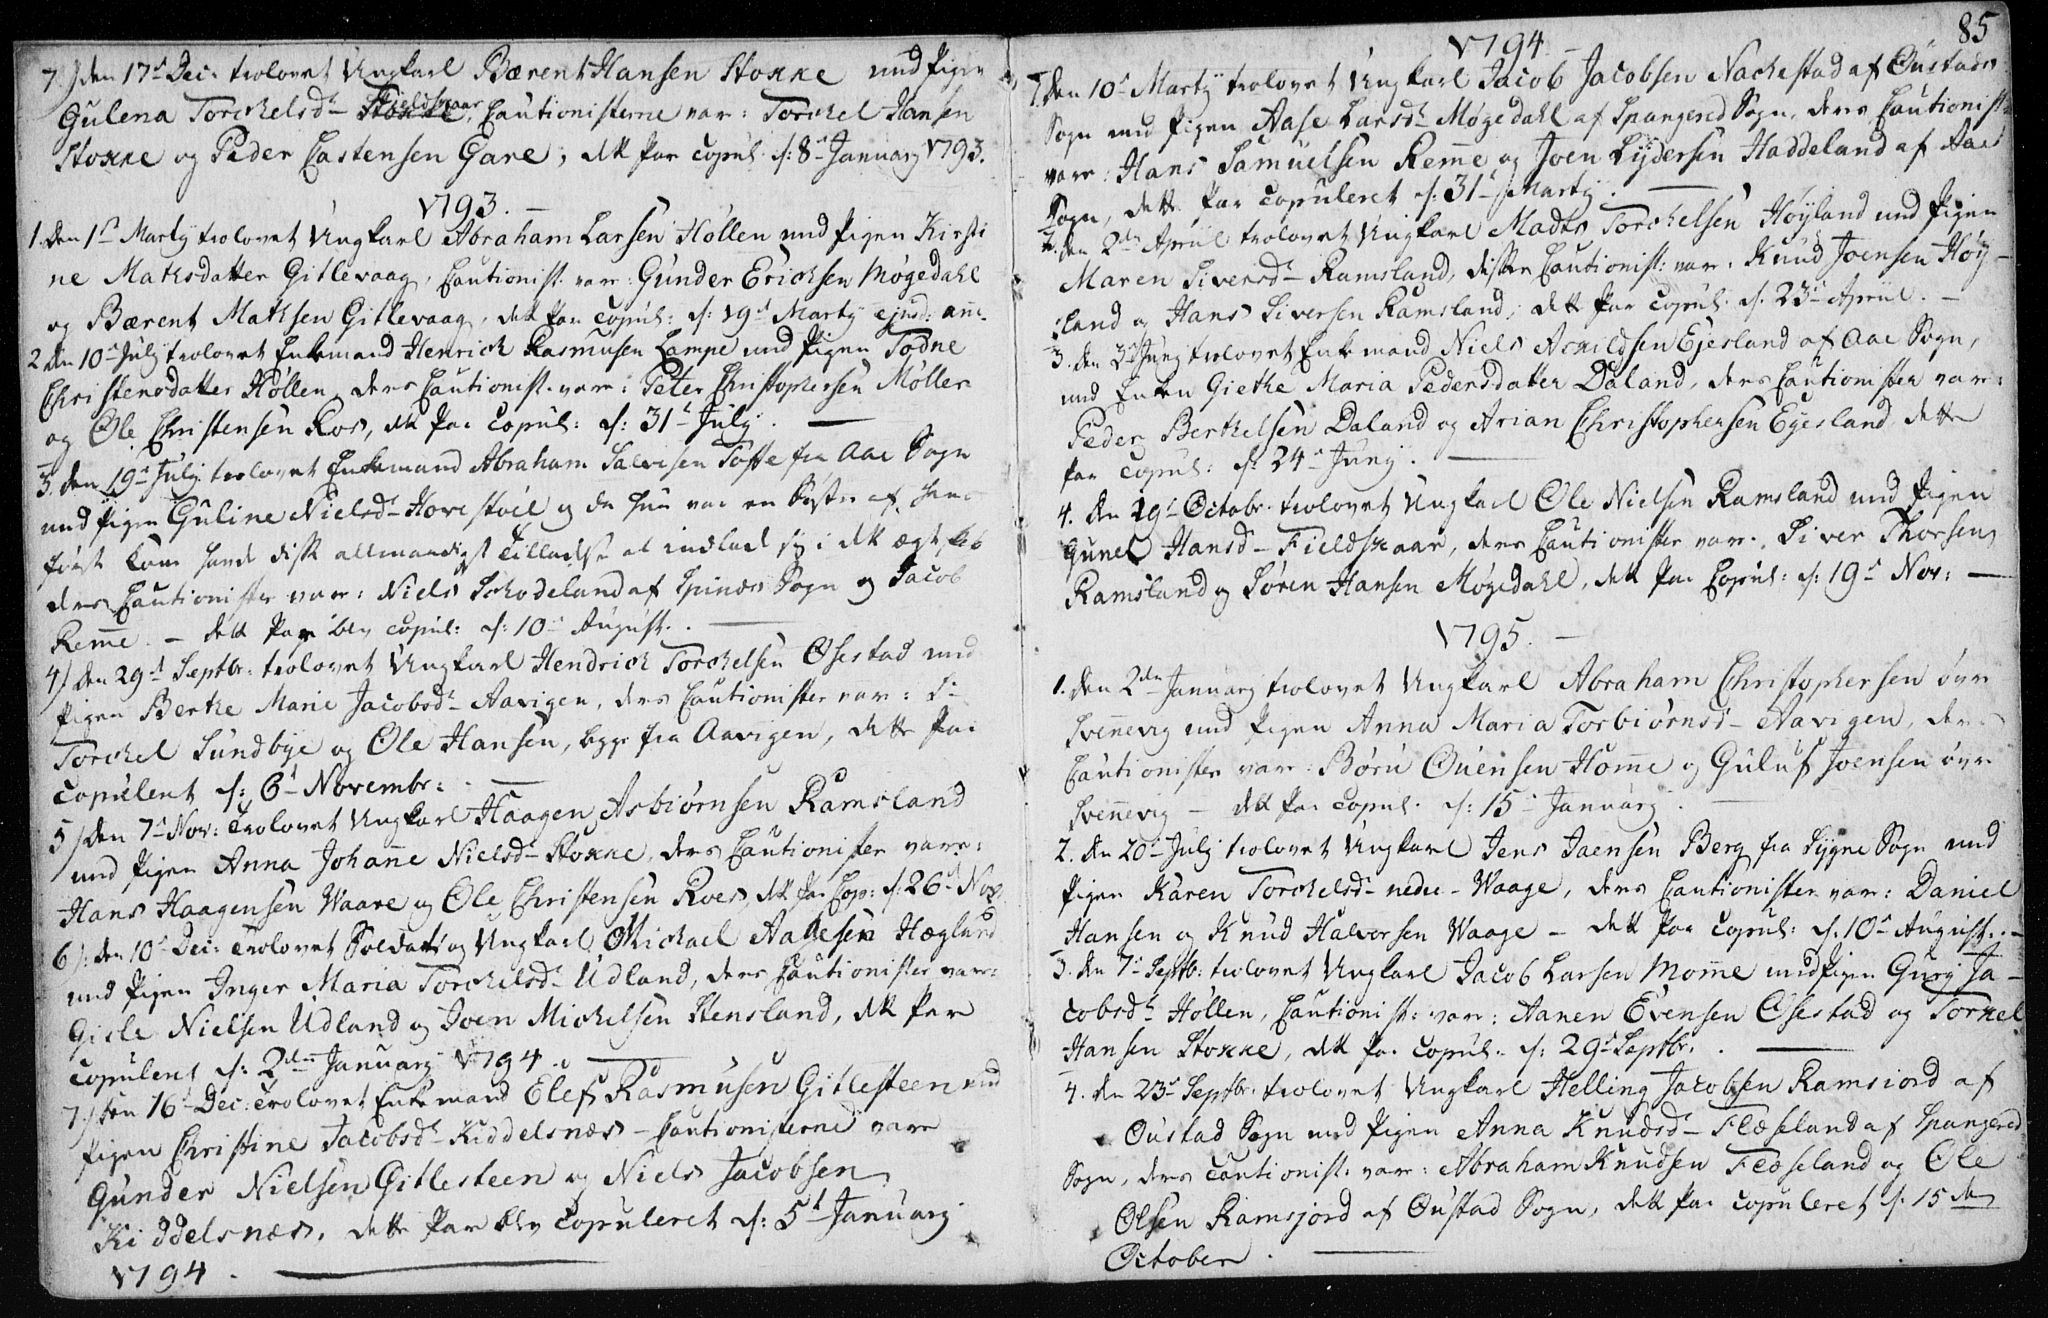 7.) den 17d Dec: trolovet Ungkarl Bærent Hansen Stokke med Pigen
Gulena Torchelsd: Stokke Fieldskaar, Cautionisterne var: Torchel Hansen
Stokke og Peder Castensen Gare, dette Par copul: d: 8d January 1793.
1793. —
1. den 1d Marty trolovet Ungkarl Abraham Larsen Høllen med Pigen Kirsti
ne Mathsdatter Gitlevaag, Cautionist: var: Gunder Erichsen Møgedahl
og Bærent Mathsen Gitlevaag, dette Par copul: d: 19d Marty ejusd: ann:
2 den 10d July trolovet Enkemand Henrich Rasmusen Lampe med Pigen Todne
Christensdatter Høllen, deres Cautionist: var: Peter Christophersen Møller
og Ole Christensen Ros, dette Par copul: d: 31d July. —
3. den 19d July trolovet Enkemand Abraham Salvesen Tofte fra Aae Sogn
med Pigen Guline Nielsd: Hovestøel og da hun var en Søster af hans
første Kone havde disse allernaadigst Tilladelse at indlade sig i dette ægteskab
deres Cautionister var: Niels Schodeland af Spinds Sogn og Jacob
Remme. — dette Par blev copul: d: 10d August. —
4) den 29d Septbr: trolovet Ungkarl Hendrich Torchelsen Øsestad med
Pigen Berthe Marie Jacobsd: Aavigen, deres Cautionister var:
Torchel Sundbye og Ole Hansen, begge fra Aavigen, dette Par
copuleret d: 6d Novembr: —
5) den 7d Nov: trolovet Ungkarl Haagen Asbiørnsen Ramsland
med Pigen Anna Johanne Nielsd: Stokke, deres Cautionister vare:
Hans Haagensen Waare og Ole Christensen Roes, dette Par Cop: d: 26d Nov:
6): den 10d Dec: trolovet Soldat og Ungkarl Michael Aanesen Hægland
med Pigen Inger Maria Torchelsd: Udland, deres Cautionister vare:
Gisle Nielsen Udland og Joen Michelsen Stensland, dette Par
copuleret d: 2den January 1794. —
7.) den 16d Dec: trolovet Enkemand Elef Rasmusen Gitlesteen med
Pigen Christine Jacobsd: Kiddelsnæs — Cautionisterne vare
Gunder Nielsen Gitlesteen og Niels Jacobsen
Kiddelsnæs, dette Par blev copuleret d: 5d January
1794. —
85
1794
1. den 10d Marty trolovet Ungkarl Jacob Jacobsen Nachestad af Oustads
Sogn med Pigen Aase Larsd: Møgedahl af Spangered Sogn, deres Cautionist:
vare: Hans Samuelsen Remme og Joen Lydersen Haddeland af Aae
Sogn, dette Par copuleret d: 31d Marty. —
2. den 2den April trolovet Ungkarl Madts Torchelsen Høyland med Pigen
Maren Siversd: Ramsland, disse Cautionist: var: Knud Joensen Høy-
land og Hans Siversen Ramsland, dette Par copul: d: 23d April. —
3. den 3d Juny trolovet Enkemand Niels Askildsen Ejesland af Aae Sogn,
med Enken Giethe Maria Pedersdatter Daland, deres Cautionister var:
Peder Berthelsen Daland og Arian Christophersen Egesland, dette
Par copul: d: 24d Juny. —
4. den 29d Octobr: trolovet Ungkarl Ole Nielsen Ramsland med Pigen
Gunel Hansd: Fieldskaar, deres Cautionister var: Siver Thorsen
Ramsland og Søren Hansen Møgedahl, dette Par Copul: d: 19d Nov: —
1795. —
1. den 2den January trolovet Ungkarl Abraham Christophersen øvre
Svennevig med Pigen Anna Maria Torbiørnsd: Aavigen, deres
Cautionister var: Børu Ouensen Homme og Guluf Joensen øvre
Svennevig — dette Par copul: d: 15d January. —
2. den 20d July trolovet Ungkarl Jens Jaensen Berg fra Lygne Sogn med
Pigen Karen Torchelsd: nedre Waage, deres Cautionister var: Daniel
Hansen og Knud Halvorsen Waage — dette Par copul: d: 10d August. —
3. den 7d Septb: trolovet Ungkarl Jacob Larsen Momme med Pigen Gury Ja-
cobsd: Høllen, Cautionist: var: Aanen Evensen Øsestad og Torkel
Hansen Stokke, dette Par copul: d: 29d Septbr. —
4. den 23d Septbr: trolovet Ungkarl Helling Jacobsen Ramsiord af
Oustad Sogn med Pigen Anna Knudsd: Flæseland af Spangered
Sogn, deres Cautionist: var: Abraham Knudsen Flæseland og Ole
Olsen Ramsjord af Oustad Sogn, dette Par copuleret d: 15de
October. —